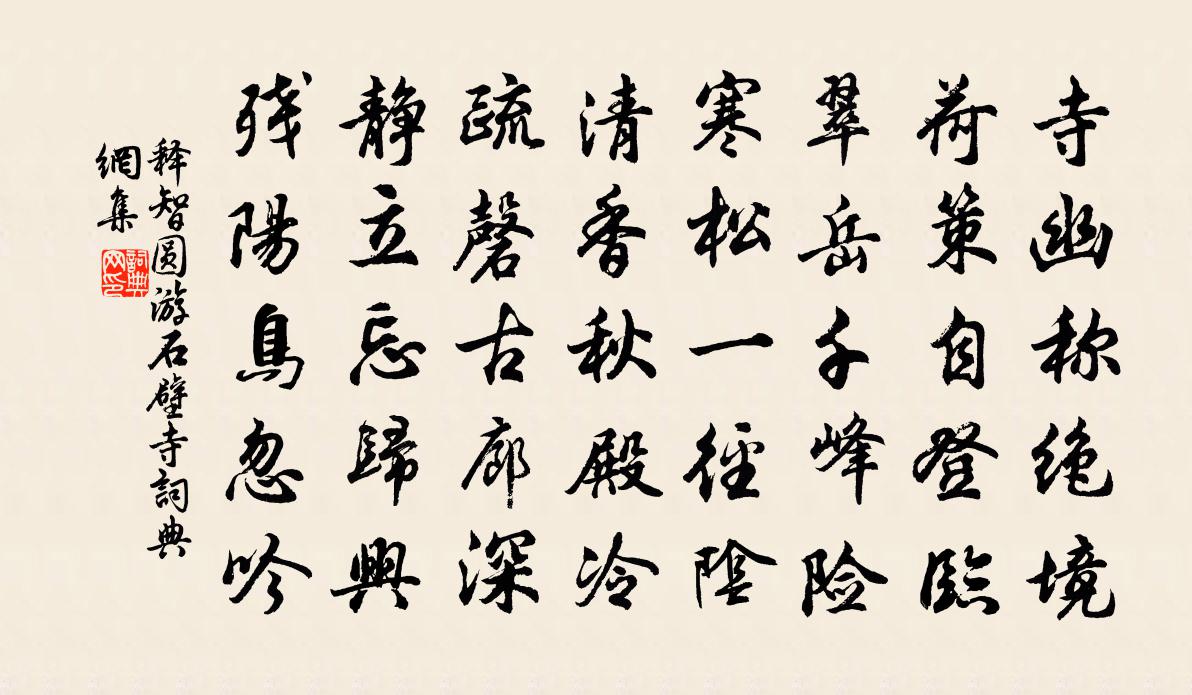 寺幽称绝境
荷策自登臨
翠岳千峰险
寒松一径陰
清香秋殿冷
疏磬古廊深
靜立忘歸興
残陽鳥忽吟
释智圆游石壁寺詞典
網集
詞典
网印